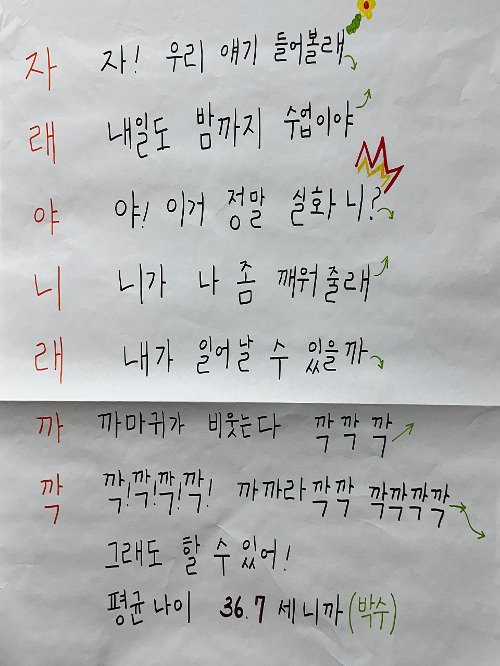 자 자! 우리 얘기 들어볼래
래 내일도 밤까지 수업이야
야 야! 이거 정말 실화니?
니 니가 나 좀 깨워줄래
래 내가 일어날 수 있을까
까 까마귀가 비웃는다 깍 깍 깍
깍 깍!깍!깍!깍! 까까라깍깍 깍깍깍깍
그래도 할 수 있어!
평균 나이 36.7 세니까(박수)